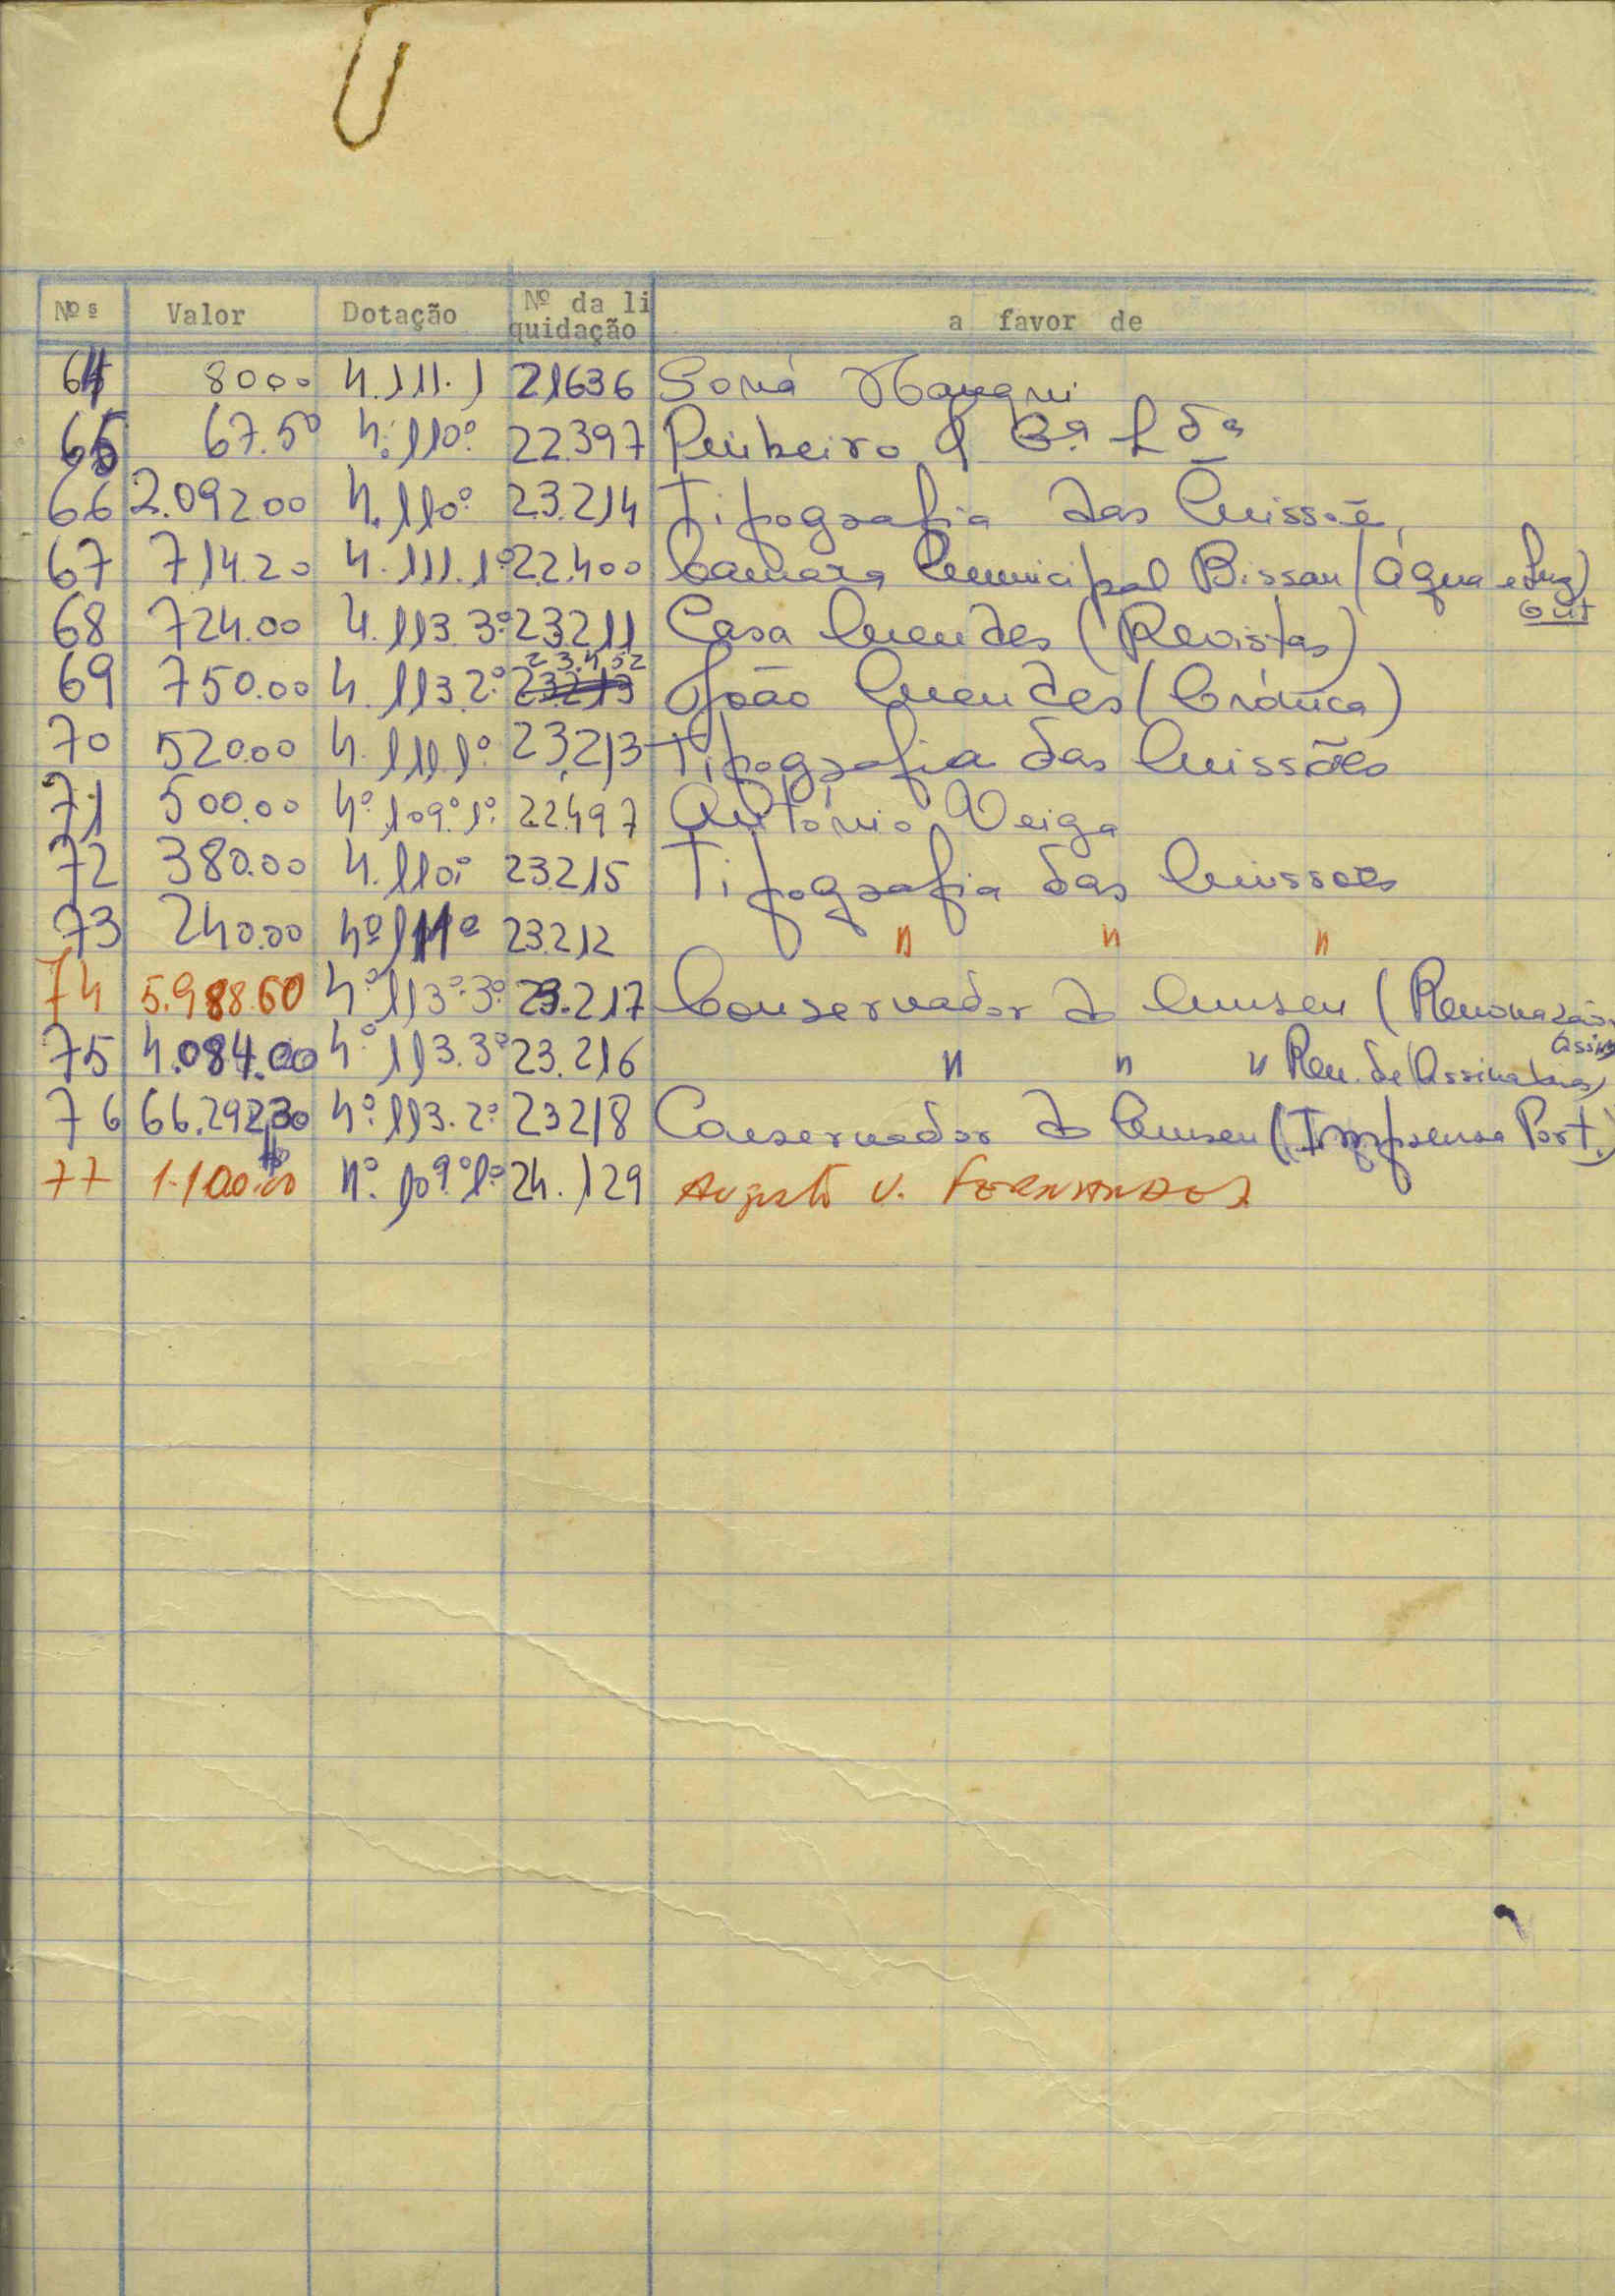 Nºs Valor Dotação Nº da li quidação a favor de
64 80.00 4.111.1 21636 Soná
65 67.50 4.110º 22.397 Pinheiro & Cª Ldª
66 2.092.00 4.110º 23.214 Tipografia das Missõe
67 714.20 4.111.1º 22.400 Camara Municipal Bissau (Água e Luz) out
68 724.00 4.113.3º 23211 Casa Mendes (Revistas)
69 750.00 4.113.2º 23.452 23213 João Mendes (Crónica)
70 520.00 4.111.1º 23213 Tipografia das Missões
71 500.00 4º.109º.1º 22.497 António Veiga
72 380.00 4.110º 23215 Tipografia das Missoes
73 240.00 4º 111º 23.212 " " "
74 5.988.60 4º.113º.3º 23.217 Conservador do Museu (Renovação assin
75 4.084.00 4º 113.3º 23.216 " " " Ren. de Assinaturas)
76 66.292.30 4º.113.2º 23218 Conservador do Museu (Imprensa Port.)
77 1.100.00 4º.109º.1º 24.129 Augusto V. FERNANDES